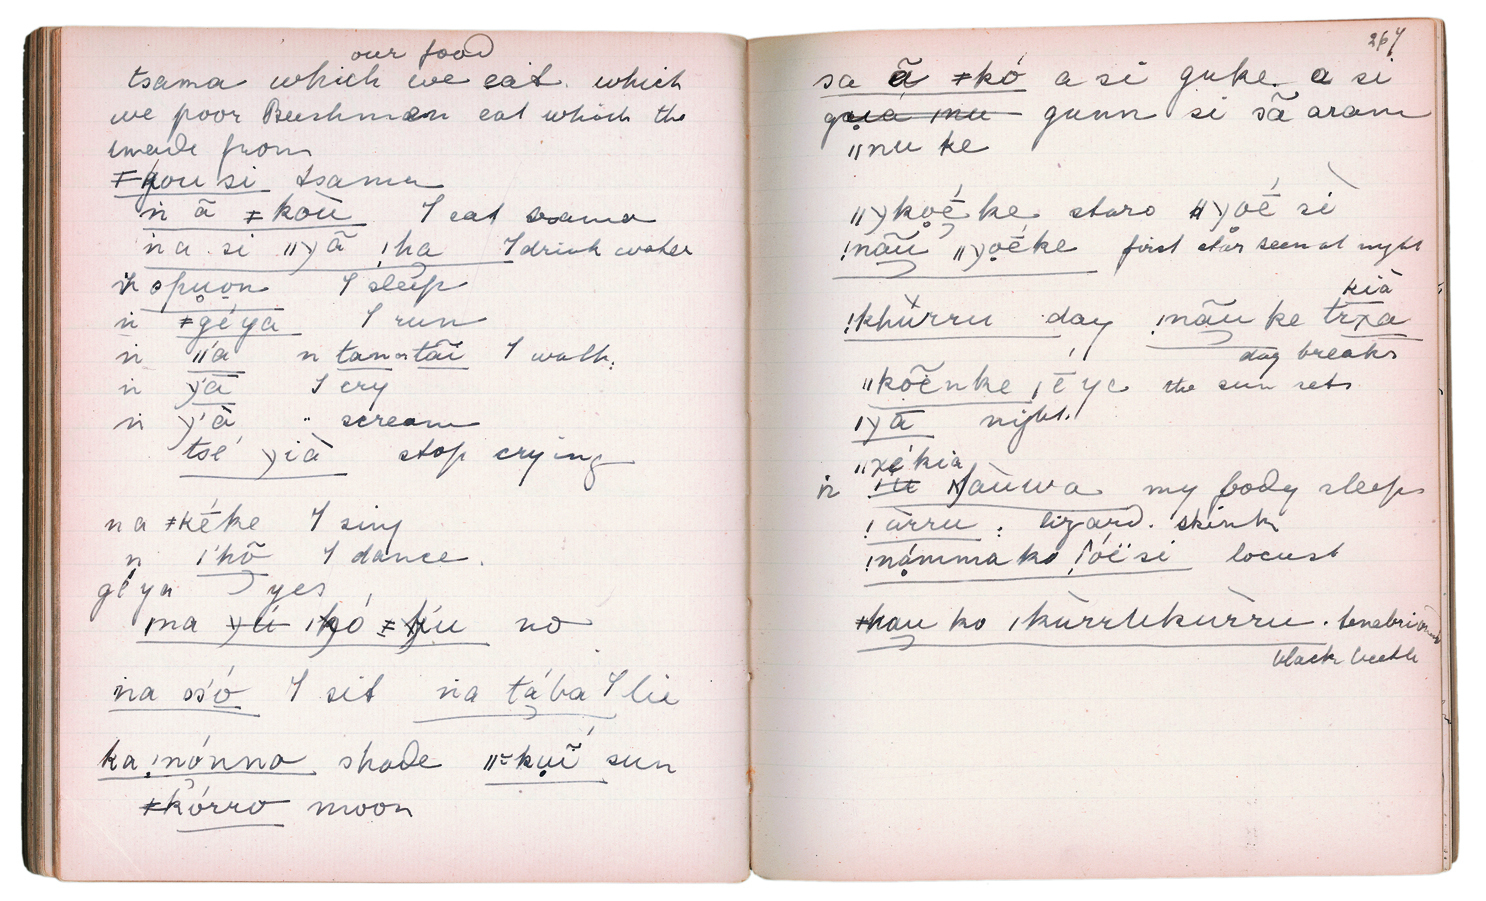 our food
tsama which we eat. which
we poor Bushman eat which the
made from
ǂkou si tsama
ṅ ã ǂkoù I eat tsama
na si ǁyã ǃha I drink water
ṅ opuon I sleep
ṅ ǂgéya I run
ṅ ǁa n tan or tãi I walk.
ṅ yã I cry
ṅ y'à " scream
tsé yià stop crying
na ǂkéke I sing
n ǀhõ I dance.
géya yes
ǀma no
na só I sit na tába I lie
ka ǃnónna shade sun
ǂkórro moon
267
sa ã ǂkó a si guke a si
gunn si sã aram
ǁnu ke
ǁykoéke stars ǁyoé sì
ǃnãu ǁyoéke first star seen at night
kià
ǃkhùrru day ǃnãu ke trxa
day breaks
ǁkõenke ǀéye the sun sets
ǀyã night.
ǁxékia
ṅ ǀàuwa my body sleeps
ǃùrru. lizard. skink
ǃnámma ko ǀóësi locust
ǂhau ko ǀkùrrukùrru.
black beetle